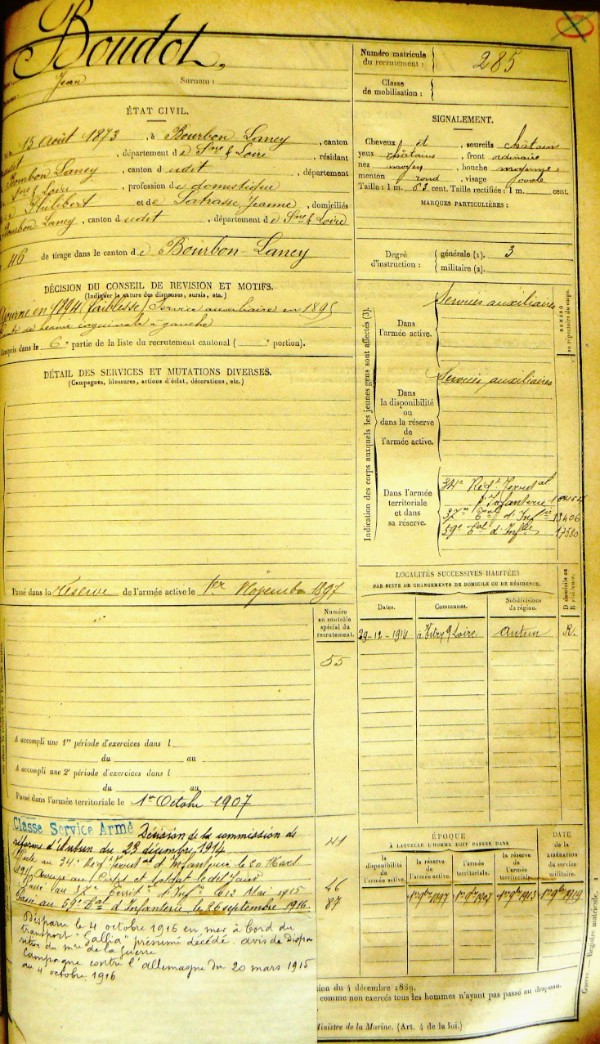 Boudot,
Jean Surnom :
Numéro matricule
du recrutement : 285
Classe
de mobilisation :
ÉTAT CIVIL.
15 Août 1873, à Bourbon Lancy, canton
, département de Sne & Loire, résidant
Bourbon Lancy, canton d udit, département
Sne & Loire, profession de domestique
Philibert et de Jeanne, domiciliés
Bourbon Lancy, canton d udit, département de Sne & Loire
46 de tirage dans le canton de Bourbon-Lancy
SIGNALEMENT.
Cheveux et , sourcils châtains
yeux châtains, front ordinaire
nez moyen, bouche moyenne
menton rond, visage ovale
Taille : 1 m. 63 cent. Taille rectifiée : 1 m. cent.
MARQUES PARTICULIÈRES :
Degré
d'instruction : générale (2). 3
militaire (2).
DÉCISION DU CONSEIL DE REVISION ET MOTIFS.
(Indiquer la nature des dispenses, sursis, etc.)
Ajourné en 1894 (faiblesse) Service auxiliaire en 1895
à gauche
Compris dans la 6e partie de la liste du recrutement cantonal ( e portion).
DÉTAIL DES SERVICES ET MUTATIONS DIVERSES.
(Campagnes, blessures, actions d'éclat, décorations, etc.)
Passé dans la Réserve de l'armée active le 1er Novembre 1897
Numéro
au contrôle
spécial du
recrutement.
55
A accompli une 1re période d'exercices dans l
du au
A accompli une 2e période d'exercices dans l
du au
Passé dans l'armée territoriale le 1er Octobre 1907
Classé Service Armé Décision de la commission de
réforme d'Autun du 23 décembre 1914
au 34e Regt Territal d'Infanterie le 20 Mars
1915 Arrivé au Corps et soldat le dit jour
Passé au 37e Territ. d'Inf. le 13 Mai 1915
Passé au 59e Bat d'Infanterie le 26 septembre 1916.
41
46
87
Disparu le 4 octobre 1916 en mer à bord du
transport "Gallia" présumé décédé. avis de dispa-
rition du mre de la guerre
Campagne contre l'allemagne du 20 mars 1915
au 4 octobre 1916
Indication des corps auxquels les jeunes gens sont affectés (3).
Dans
l'armée active.
Services auxiliaires
Dans
la disponibilité
ou
dans la réserve
de
l'armée active.
Services auxiliaires
Dans l'armée
territoriale
et dans
sa réserve.
34e Regt Territal
d'Infanterie
37e d'Infie 13406
59e Bat d'Infie 17580
NUMÉRO
au répertoire du corps.
LOCALITÉS SUCCESSIVES HABITÉES
PAR SUITE DE CHANGEMENTS DE DOMICILE OU DE RÉSIDENCE.
Dates. Communes. Subdivisions
de région. D domicile ou
R résidence.
29-12-1911 à Vitry s/ Loire Autun R.
ÉPOQUE
À LAQUELLE L'HOMME DOIT PASSER DANS
DATE
de la
LIBÉRATION
du service
militaire.
la
disponibilité
de l'armée active.
la réserve
de
l'armée active.
l'armée
territoriale.
la réserve
de
l'armée
territoriale.
1er 9bre 1897 1er 9bre 1907 1er 9bre 1913 1er 9bre 1919
du 4 décembre 1889.
comme non exercés tous les hommes n'ayant pas passé au drapeau.
Ministre de la Marine. (Art. 4 de la loi.)
Guerre. — Registre matricule. 1